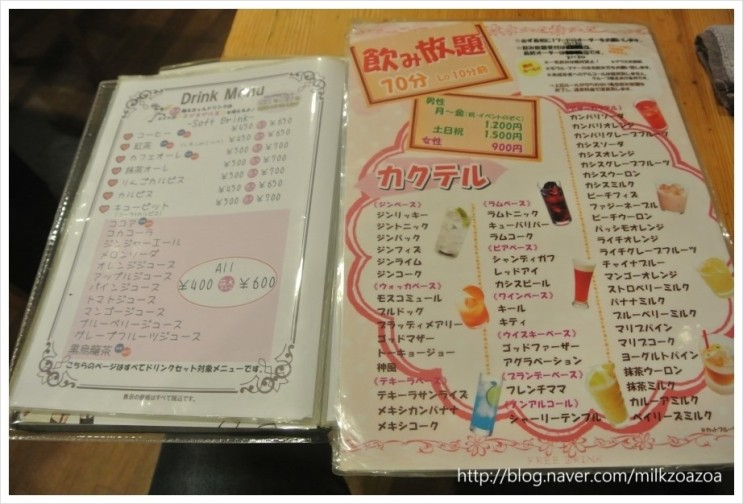 Drink Menu
~Soft Drink~
コーヒー ¥450 ¥650
紅茶 ¥450 ¥650
カフェオーレ ¥500 ¥700
抹茶オーレ ¥500 ¥700
りんごカルピス ¥500 ¥700
カルピス ¥450 ¥650
キューピット ¥500 ¥700
ココア
コカコーラ
ジンジャーエール
メロンソーダ
オレンジジュース
アップルジュース
パインジュース
トマトジュース
マンゴージュース
ブルーベリージュース
グレープフルーツジュース
All
¥400 ¥600
黒烏龍茶
こちらのページはすべてドリンクセット対象メニューです。
表示の価格はすべて税込です。
飲み放題
70分 Lo 10分前
男性
月~金(祝・イベントのぞく)
1,200円
土日祝 1,500円
女性 900円
カクテル
(ジンベース)
ジンリッキー
ジントニック
ジンバック
ジンフィズ
ジンライム
ジンコーク
(ウォッカベース)
モスコミュール
ブルドッグ
ブラッディメアリー
ゴッドマザー
トーキョージョー
神風
(テキーラベース)
テキーラサンライズ
メキシカンバナナ
メキシコーク
(ラムベース)
ラムトニック
キューバリバー
ラムコーク
(ビアベース)
シャンディガフ
レッドアイ
カシスビール
(ワインベース)
キール
キティ
(ウイスキーベース)
ゴッドファーザー
アグラベーション
(ブランデーベース)
フレンチママ
(ノンアルコール)
シャーリーテンプル
カンパリソーダ
カンパリオレンジ
カンパリグレープフルーツ
カシスソーダ
カシスオレンジ
カシスグレープフルーツ
カシスウーロン
カシスミルク
ピーチフィズ
ファジーネーブル
ピーチウーロン
パッシモオレンジ
ライチオレンジ
ライチグレープフルーツ
チャイナブルー
マンゴーオレンジ
ストロベリーミルク
バナナミルク
ブルーベリーミルク
マリブパイン
マリブコーク
ヨーグルトパイン
抹茶ウーロン
抹茶ミルク
カルーアミルク
ベイリーズミルク
FREE DRINK
http://blog.naver.com/milkzoazoa